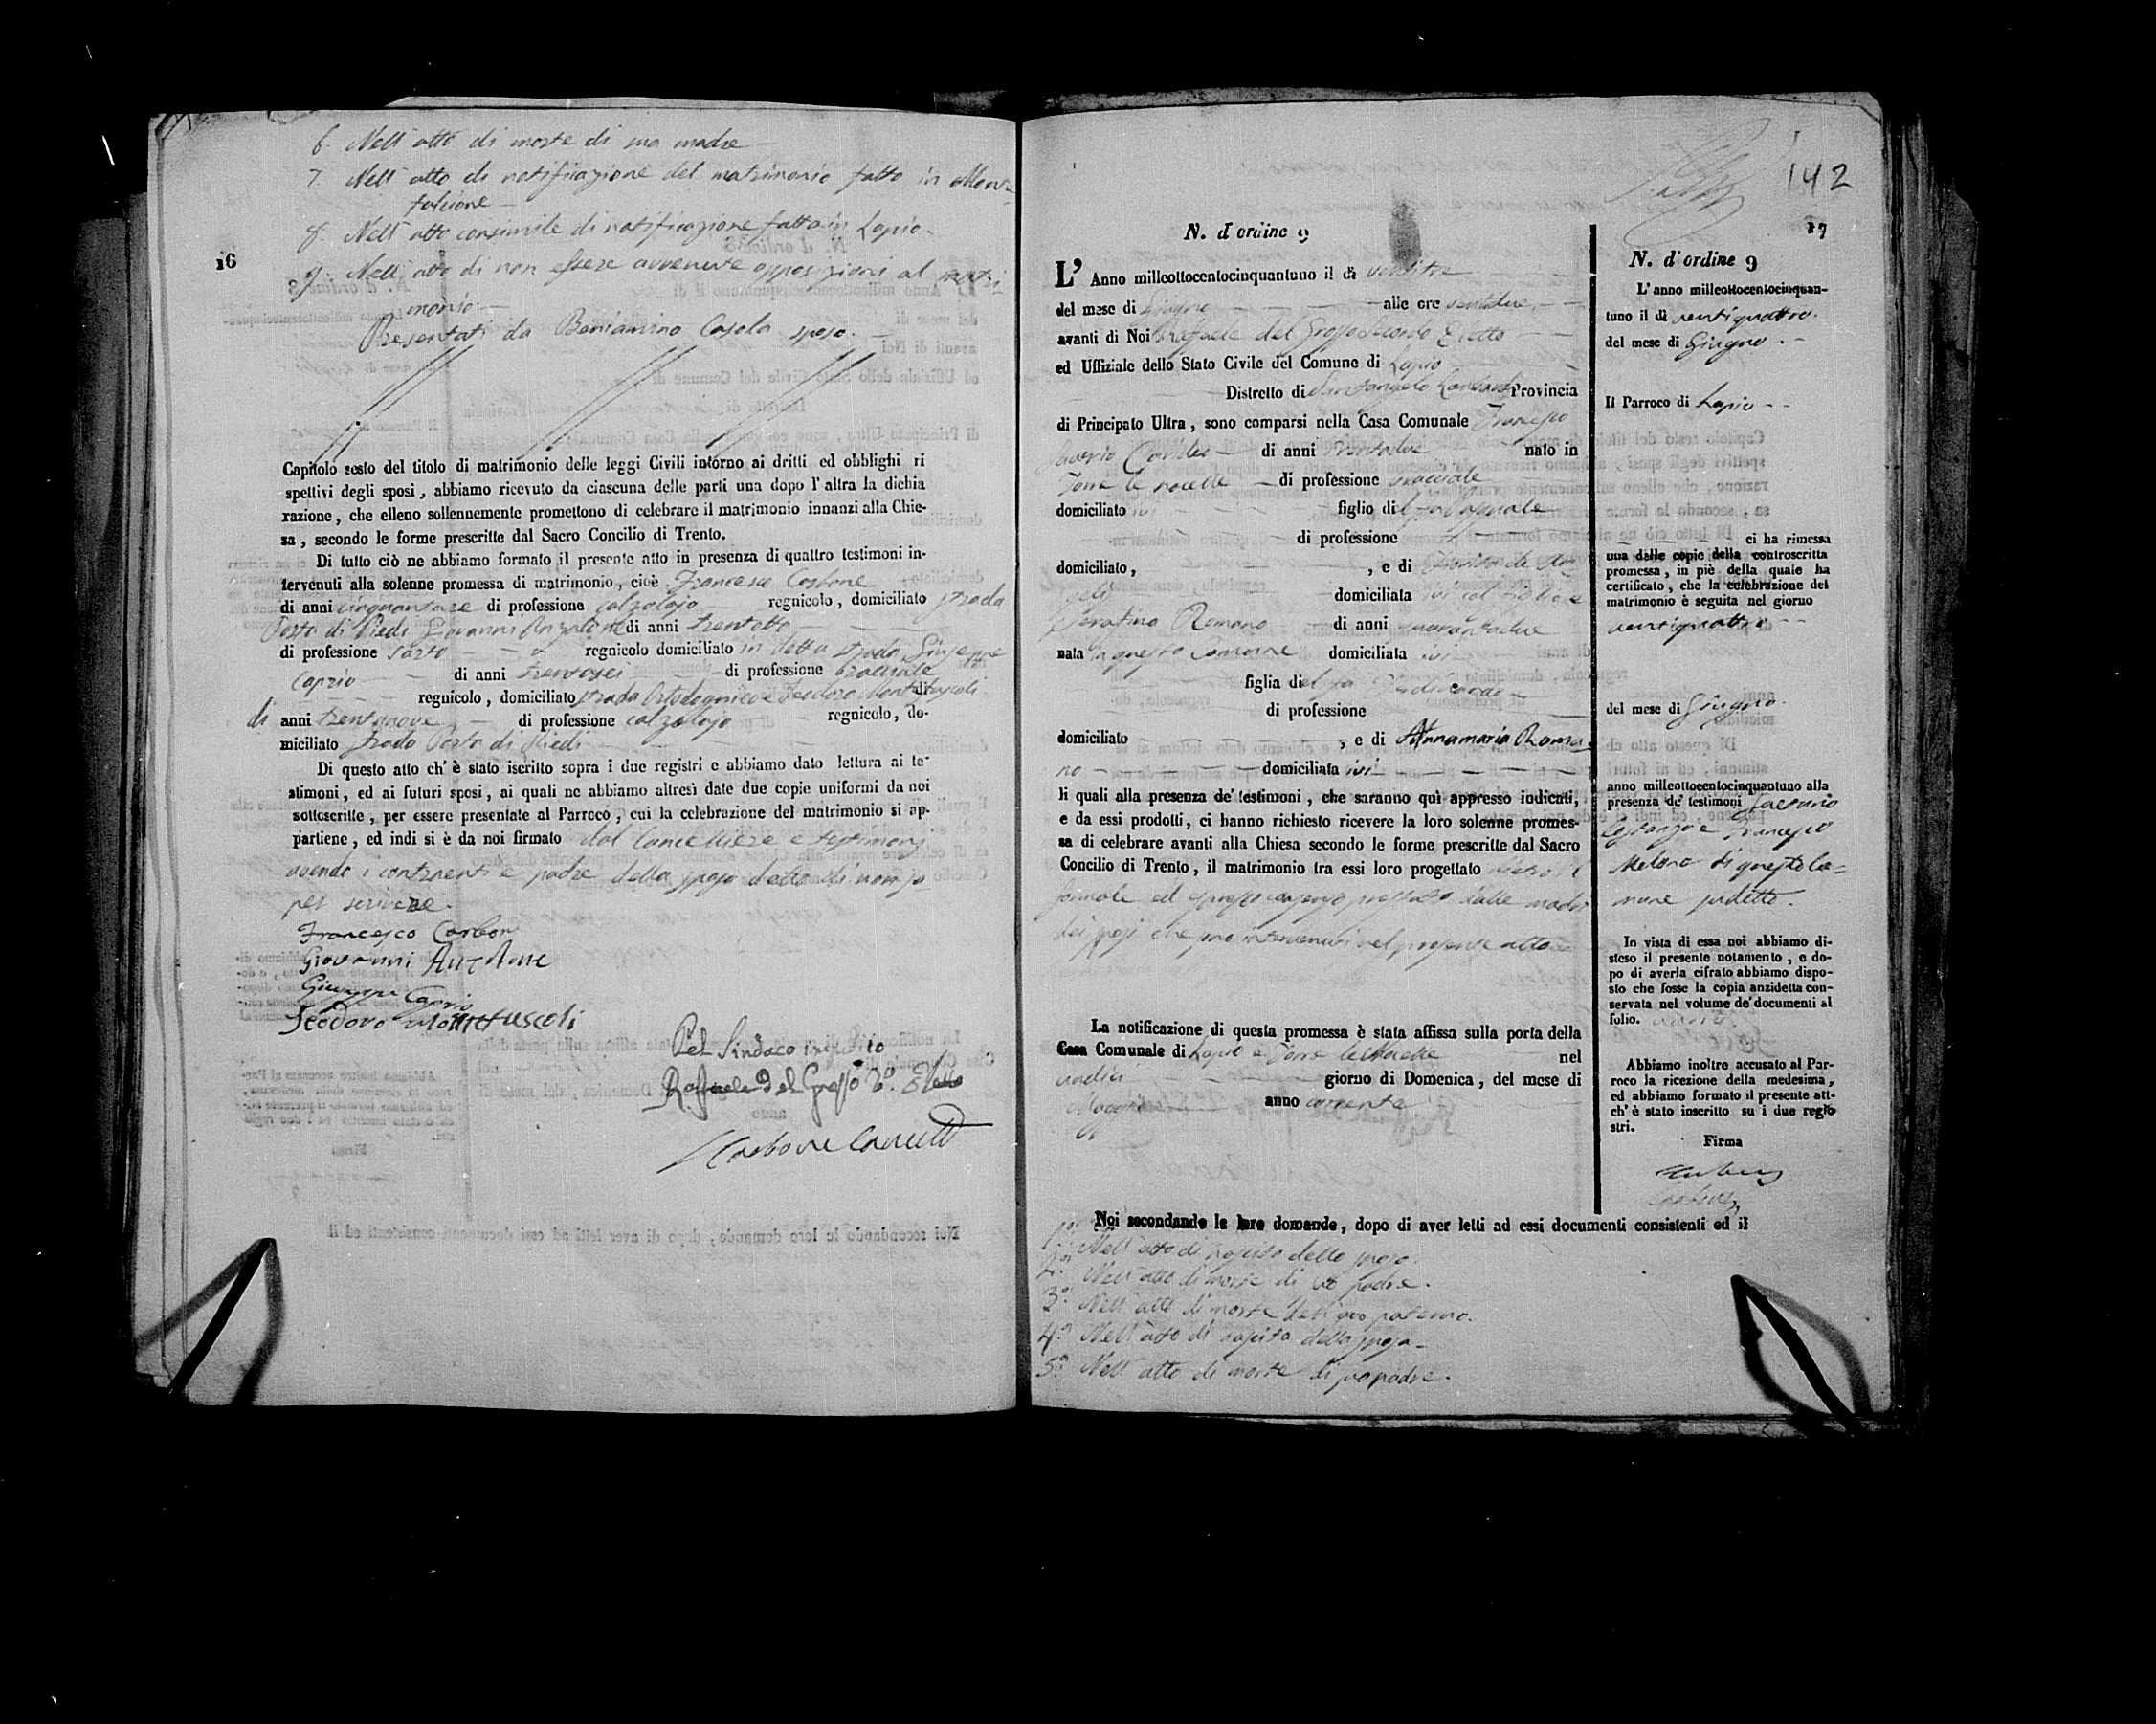 6. Nell'atto di morte di sua madre
7. Nell'atto di notificazione del matrimonio fatto in Mont
falcione
8. Nell'atto consimile di notificazione fatta in Lapio.
16
9. Nell'atto di non essere avvenute opposizioni al matri
monio
Presentati da Beniamino Casola sposo.
Capitolo sesto del titolo di matrimonio delle leggi Civili intorno ai dritti ed obblighi ri
spettivi degli sposi, abbiamo ricevuto da ciascuna delle parti una dopo l'altra la dichia
razione, che elleno sollennemente promettono di celebrare il matrimonio innanzi alla Chie-
sa, secondo le forme prescritte dal Sacro Concilio di Trento.
Di tutto ciò ne abbiamo formato il presente atto in presenza di quattro testimoni in-
tervenuti alla solenne promessa di matrimonio, cioè Francesco Carbone
di anni di professione calzolajo regnicolo, domiciliato strada
Porta di Piedi Giovanni di anni trentotto
di professione sarto regnicolo domiciliato in detta strada Giuseppe
Caprio di anni trentasei di professione bracciale
regnicolo, domiciliato strada Teodoro Montefuscoli
di anni trentanove di professione calzolajo regnicolo, do-
miciliato strada Porta di Piedi
Di questo atto ch'è stato iscritto sopra i due registri e abbiamo dato lettura ai te-
stimoni, ed ai futuri sposi, ai quali ne abbiamo altresì date due copie uniformi da noi
sottoscritte, per essere presentate al Parroco, cui la celebrazione del matrimonio si ap-
partiene, ed indi si è da noi firmato dal Cancelliere e testimonj
avendo i contraenti e padre della sposa detto di non sa
per scrivere.
Francesco Carbone
Giovanni
Giuseppe Caprio
Teodoro Montefuscoli
Pel Sindaco impedito
Raffaele del Grosso 2º. Eletto
Carbone Cancell
142
17
N. d'ordine 9
L'Anno milleottocentocinquantuno il dì ventitre
del mese di Giugno alle ore ventidue
avanti di Noi Raffaele del Grosso Secondo Eletto
ed Uffiziale dello Stato Civile del Comune di Lapio
Distretto di Santangelo Lombardi Provincia
di Principato Ultra, sono comparsi nella Casa Comunale Francesco
Saverio di anni trentadue nato in
Torre le nocelle di professione bracciale
domiciliato ivi figlio del fu Pasquale
di professione
domiciliato, , e di
domiciliata ivi col figlio e
Serafina Romano di anni quarantadue
nata in questo Comune domiciliata ivi
figlia del fu
di professione
domiciliato , e di Annamaria Roma-
no domiciliata ivi
li quali alla presenza de' testimoni, che saranno quì appresso indicati,
e da essi prodotti, ci hanno richiesto ricevere la loro solenne promes-
sa di celebrare avanti alla Chiesa secondo le forme prescritte dal Sacro
Concilio di Trento, il matrimonio tra essi loro progettato
formale ed espresso consenso prestato dalle madri
dei sposi che sono intervenute nel presente atto
La notificazione di questa promessa è stata affissa sulla porta della
Casa Comunale di Lapio e Torre le Nocelle nel
undici giorno di Domenica, del mese di
Maggio anno corrente
Noi secondando le loro domande, dopo di aver letti ad essi documenti consistenti ed il
1º. Nell'atto di nascita dello sposo.
2º. Nell'atto di morte di suo padre.
3º. Nell'atto di morte dell'avo paterno.
4º. Nell'atto di nascita della sposa
5º. Nell'atto di morte di suo padre.
N. d'ordine 9
L'anno milleottocentocinquan-
tuno il dì ventiquattro
del mese di Giugno.
Il Parroco di Lapio
ci ha rimessa
una dalle copie della controscritta
promessa, in piè della quale ha
certificato, che la celebrazione del
matrimonio è seguita nel giorno
ventiquattro
del mese di Giugno.
anno milleottocentocinquantuno alla
presenza de' testimoni
e Francesco
di questo Co=
mune sudetto.
In vista di essa noi abbiamo di-
steso il presente notamento, e do-
po di averla cifrato abbiamo dispo-
sto che fosse la copia anzidetta con-
servata nel volume de' documenti al
folio.
Abbiamo inoltre accusato al Par-
roco la ricezione della medesima,
ed abbiamo formato il presente att-
ch'è stato inscritto su i due regio
stri.
Firma